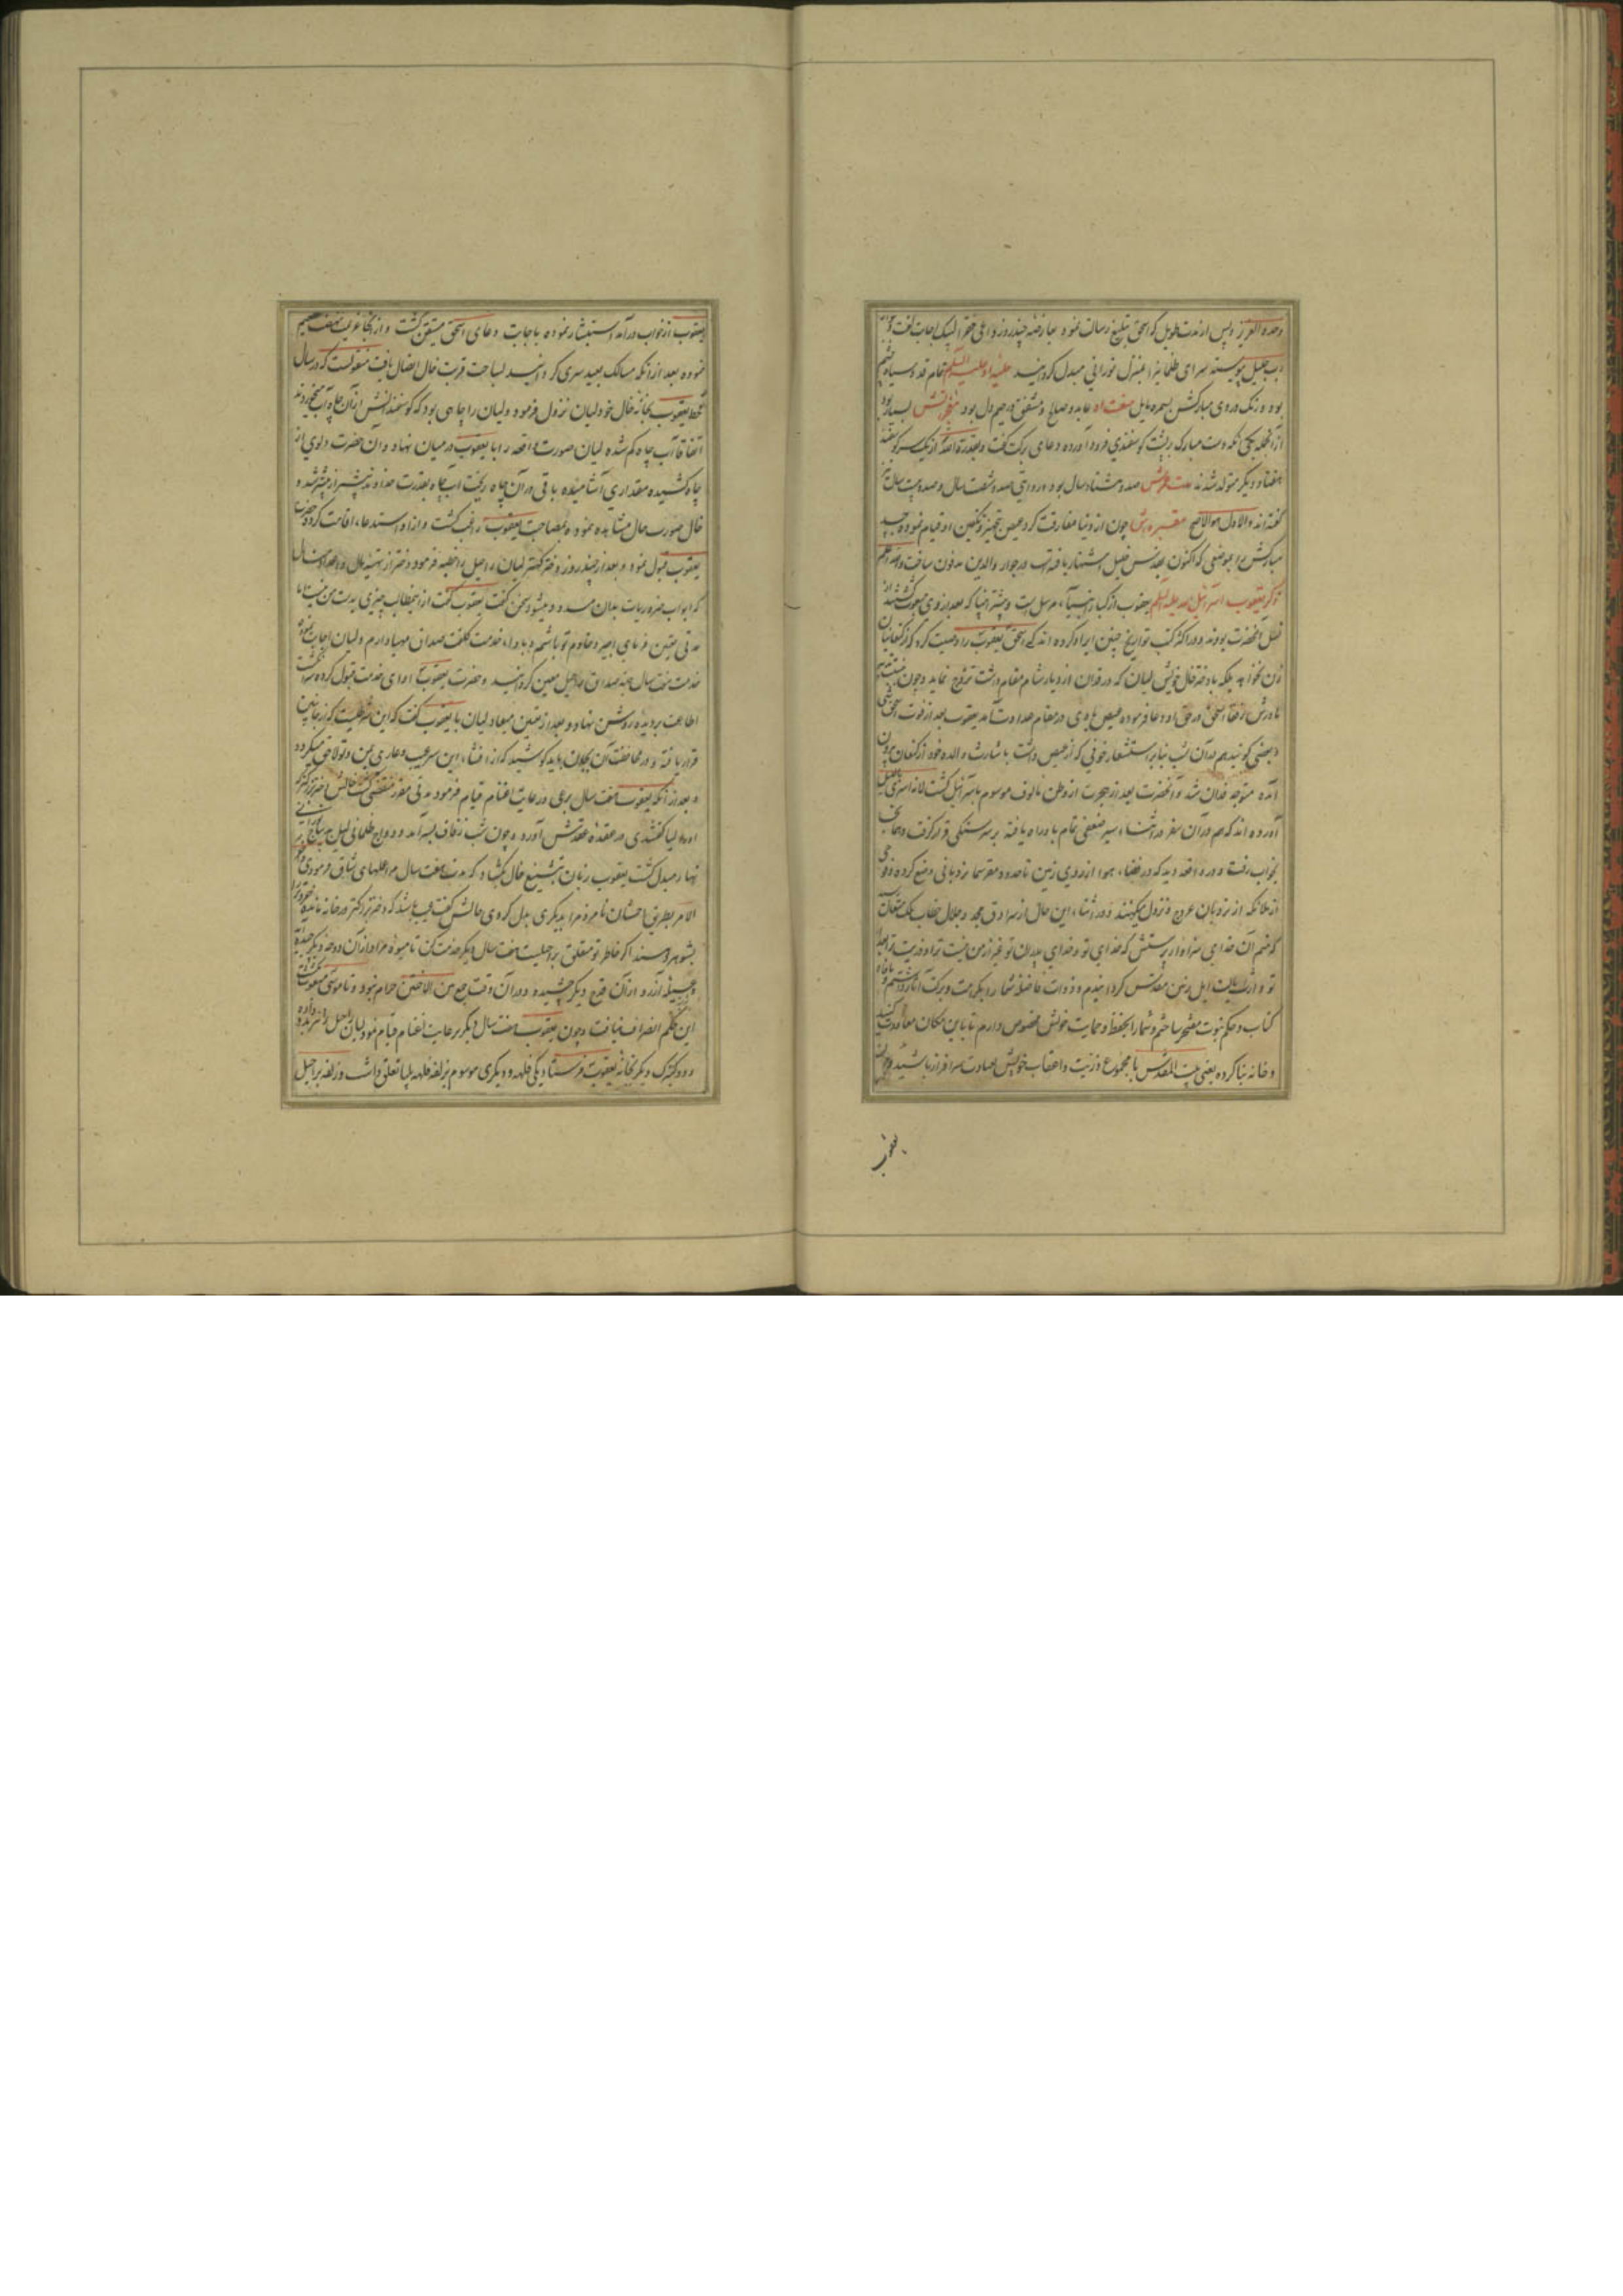 وحده العزیز و پس از مدت طویل که اسحق بتبلیغ رسالت نموده بعارضه چند روزه داعی حق را لبیک اجابت گفت و
رب جلیل پیوسته سرای ظلمانیرا بمنزل نورانی مبدل گردانید حلیه او علیه السلام تمام قد و سیاه چشم
بود و رنک روی مبارکش بسمره مایل صفت او عابد و صالح و مشفق و رحیم دل بود معجزاتش بسیار بود
از آنجمله یکی آنکه دست مبارک بر پشت کوسفندی فرود آورده دعای برکت گفت و بقدرة الله از یک سر کوسفند
هفتاد دیکر متولد شدند مدت عمرش صد و هشتاد سال بود و بروایتی صد و شصت سال و صد و بیست سال نیز
گفته اند و الاول هو الاصح مقبره اش چون از دنیا مفارقت کرد عیص بتجهیز و تکفین او قیام نموده جسد
مبارکش را بموضعی که اکنون بقدس خلیل اشتهار یافته است در جوار والدین مدفون ساخت و الله اعلم
ذکر یعقوب اسرائیل الله علیه السلم یعقوب از کبار انبیآء مرسل است و بیشتر انبیا که بعد از وی مبعوث شدند از
نسل آنحضرت بودند و در اکثر کتب تواریخ چنین ایراد کرده اند که اسحق یعقوب را وصیت کرد که از کنعانیان
زن نخواهد بلکه با دختر خال خویش لیان که در فدان از دیار شام مقام داشت تزویج نماید و چون
مادرش رفقا اسحق در حق او دعا فرموده عیص با وی در مقام عداوت آمد یعقوب بعد از فوت اسحق
و بعضی کویند هم در آن شب بنابر استشعار خوفی که از عیص داشت باشارت والده خود از کنعان بیرون
آمده متوجه فدان شد و آنحضرت بعد از هجرت از وطن مالوف موسوم باسرائیل کشت لانه اسری باللیل
آورده اند که هم در آن سفر در اثناء سیر ضعفی تمام باو راه یافته بر سر سنکی قرار کرفت و همانجا
بخواب رفت و در واقعه دید که در فضاء هوا از روی زمین تا حدود مقعر سما نردبانی وضع کرده و فوجی
از ملائکه از نردبان عروج و نزول میکنند و در اثناء این حال از سرادق مجد و جلال خطاب ملک متعال رسید
که منم آن خدای سزاوار پرستش که خدای تو و خدای پدران تو غیر از من نیست ترا و ذریت ترا بعد از
تو وارث ایالت این زمین مقدس کردانیدم و ذوات فاضله شما را بکرامت و برکت
کتاب و حکم نبوت مفتخر ساختم و شما را بحفظ و حمایت خویش مخصوص دارم تا باین مکان معاودت کنید
و خانه بنا کرده یعنی بیت المقدس با مجموع ذریت و اعقاب خویش بعبادت سرافراز باشید و چون
یعقوب
یعقوب از خواب درآمد استبشار نموده باجابت دعای اسحق متیقن کشت و از آنجا عزیمت تصمیم
نموده بعد از آنکه مسالک بعید سری کردانید لساحت قربت خال اتصال یافت منقولست که در سال
قحط یعقوب بخانه خال خود لیان نزول فرمود و لیان را چاهی بود که کوسفندانش از آن چاه آب میخوردند
اتفاقا آب چاه کم شده لیان صورت واقعه را با یعقوب در میان نهاد و آن حضرت دلوی از
چاه کشیده مقداری آشامیده باقی در آن چاه ریخت آب چاه بقدرت خداوند بیشتر از پیشتر شد و
خال صورت حال مشاهده نموده بمصاحبت یعقوب راغب کشت و از او استدعاء اقامت کرد حضرت
یعقوب قبول نمود و بعد از چند روز دختر کهتر لیان راحیل را خطبه فرمود و دختر از تهیه مال و اعداد منال
که ابواب ضروریات بدان مسدود میشود سخن گفت یعقوب گفت از این مطالب چیزی بدست من نیست اما
مدتی تعیین فرمای اجیر و خادم تو باشم و باداء خدمت کلفت صداق مهیا دارم و لیان اجابت نموده
خدمت هفت سال جهة صداق راحیل معین کردانید و حضرت یعقوب ادای خدمت قبول کرده انکشت
اطاعت بر دیده روشن نهاد و بعد از تعیین میعاد لیان با یعقوب گفت که این شرطیست که از جانبین
قرار یافته و در محافظت آن بجان باید کوشید که از افشاء این سر عیب و عار می بمن و تو لاحق میکردد
و بعد از آنکه یعقوب هفت سال برعی و رعایت اغنام قیام فرمود مدتی مقرر منقضی کشت خالش دختر بزرکتر که
او را لیا کفتندی در عقده عقدش آورد و چون شب زفاف بسر آمد و دواج ظلمانی لیل بدیباج نورانی
نهار مبدل کشت یعقوب زبان بتشنیع خال بکشاد که مدت هفت سال مرا عملهای شاق فرمودی و آخر
الامر بطریق احسان نامزد مرا بدیکری بدل کردی خالش گفت عیب باشد که دختر بزرکتر در خانه مانده خردتر را
بشوهر دهند اکر خاطر تو متعلق براحیلست هفت سال دیکر خدمت کن تا میوه مراد از آن دوحه دیکر چیده
و جمیله آرزو از آن قدح دیکر چشیده و در آن وقت جمع بین الاختین حرام نبود و تا موسی مبعوث نکشت
این حکم انصراف نیافت و چون یعقوب هفت سال دیکر برعایت اغنام قیام نمود لیان راحیل را نیز بدو داده
و دو کنیزک دیکر بخانه یعقوب فرستاد یکی فلهه و دیکری موسوم بزلفه فلهه بلیا تعلق داشت و زلفه براحیل